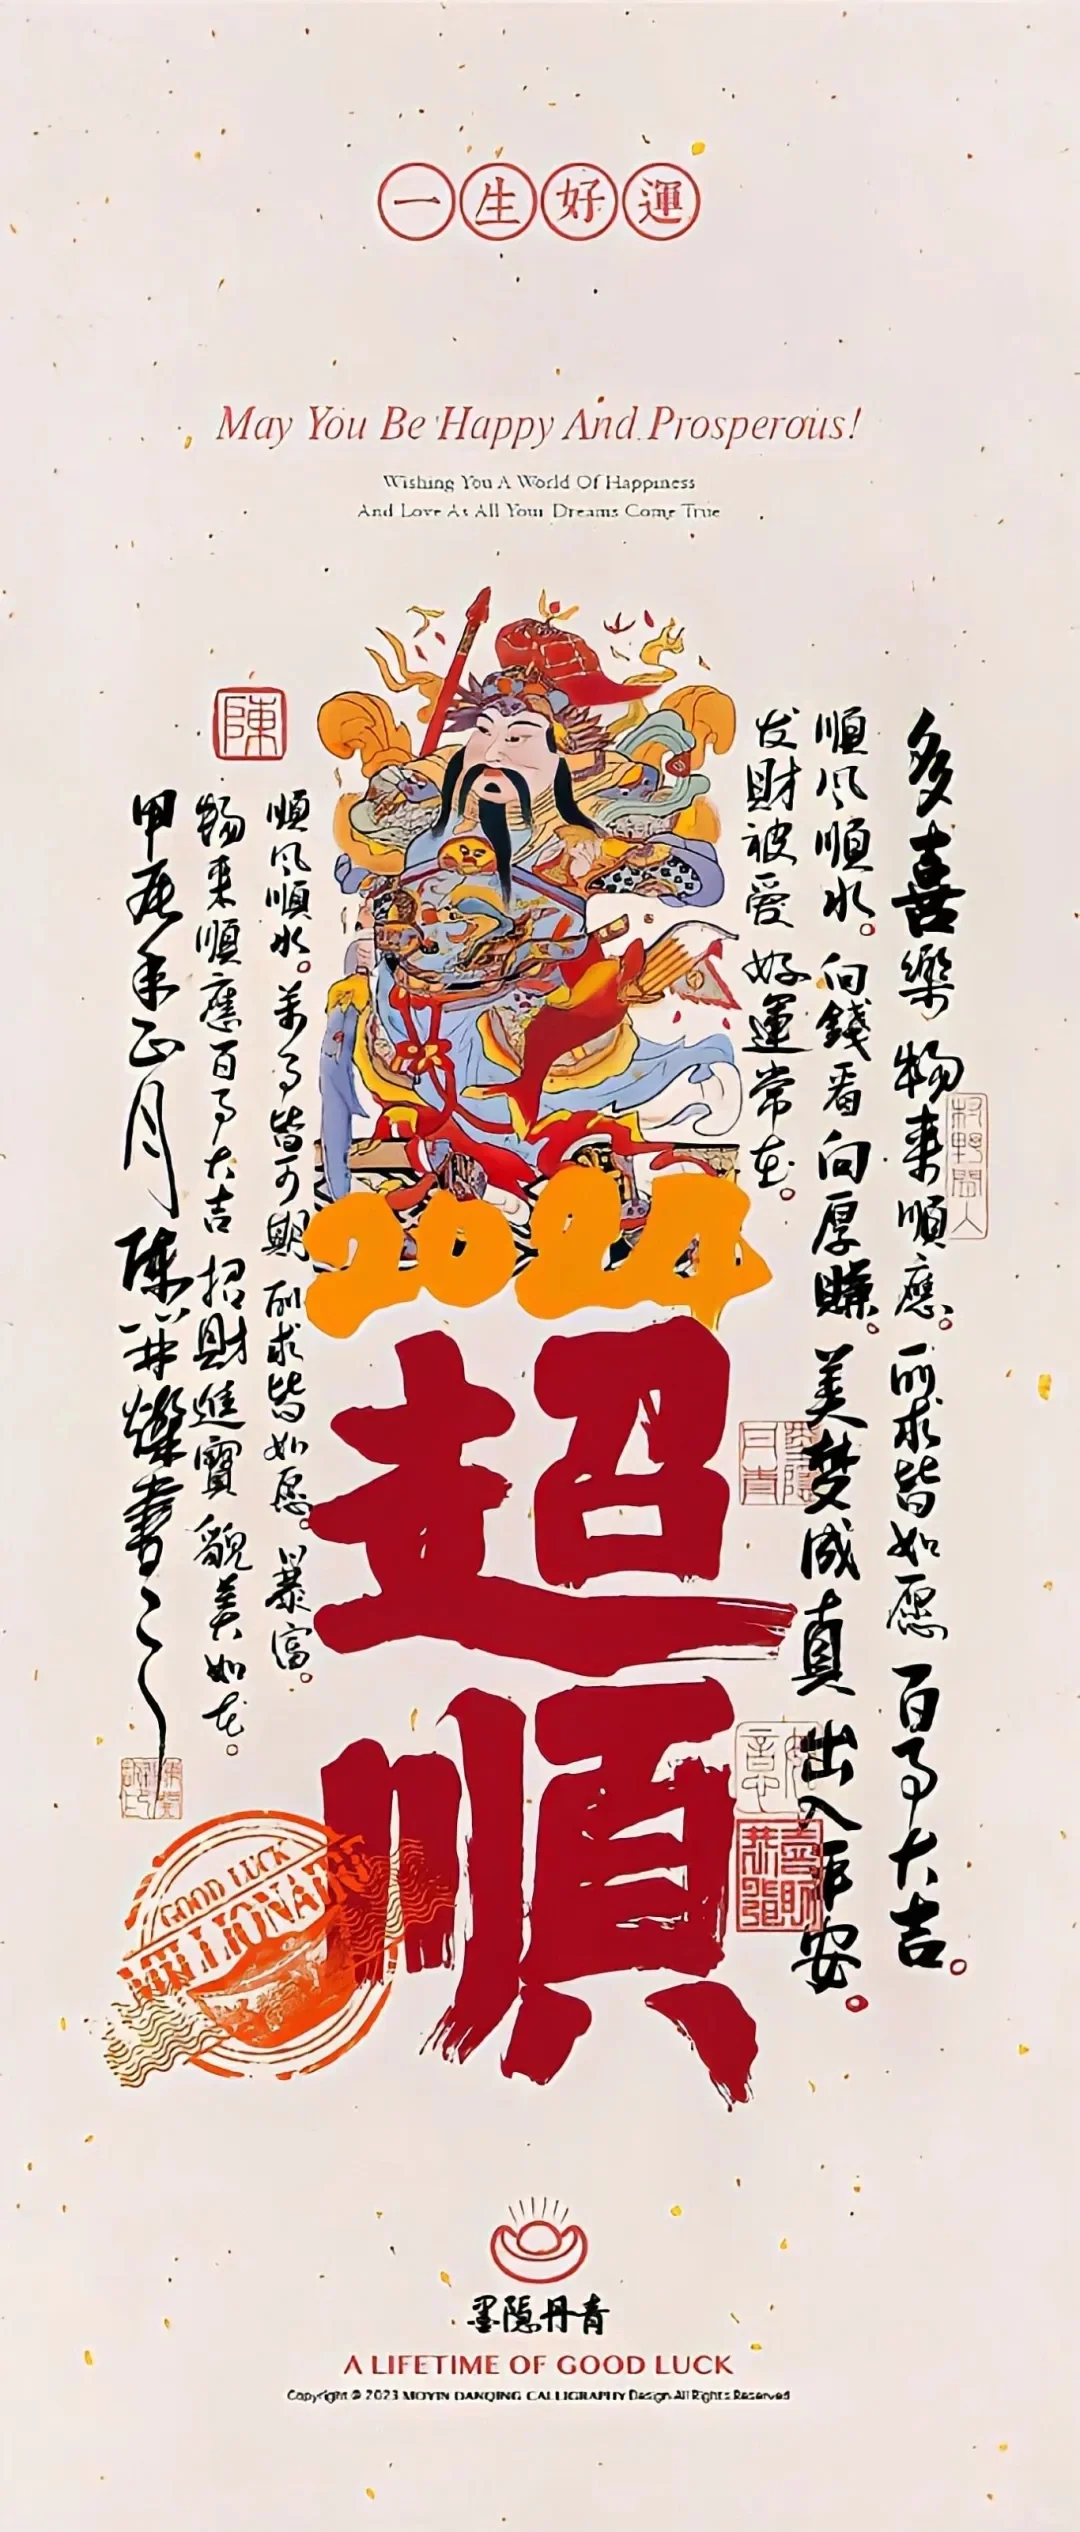 一生好運
May You Be Happy And Prosperous!
Wishing You A World Of Happiness
And Love As All Your Dreams Come True
多喜樂 物来順應。所求皆如愿 百事大吉。
順风順水。向錢看向厚賺。美梦成真 出入平安。
发财被爱 好運常在。
2024
超順
陳
順风順水。万事皆可期 所求皆如愿。暴富。
物来順應百事大吉 招財進寶 貌美如花。
甲辰年正月 陳
書
村野閒人
GOOD LUCK
MILLIONAIRE
墨隐丹青
A LIFETIME OF GOOD LUCK
Copyright @ 2023 MOYIN DANQING CALLIGRAPHY Design All Rights Reserved